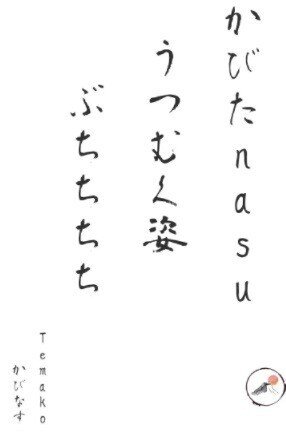 かびたnasu
うつむく姿
ぶちちちち
Temako
かびなす